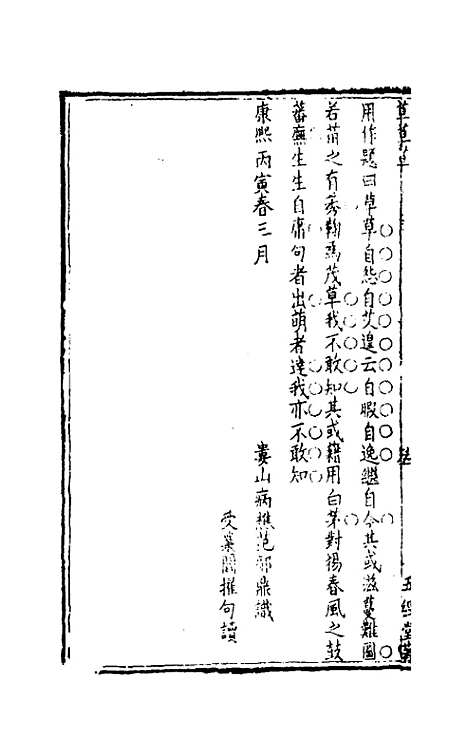 草草草
五經堂
用作題曰草草自怨自艾遑云自暇自逸繼自今其或滋蔓難圖
若苗之有莠鞠為茂草我不敢知其或藉用白茅對揚春風之鼓
蕃廡生生自庸句者出萌者達我亦不敢知
康熙丙寅春三月
婁山病樵范鄗鼎識
受業閻擢句讀